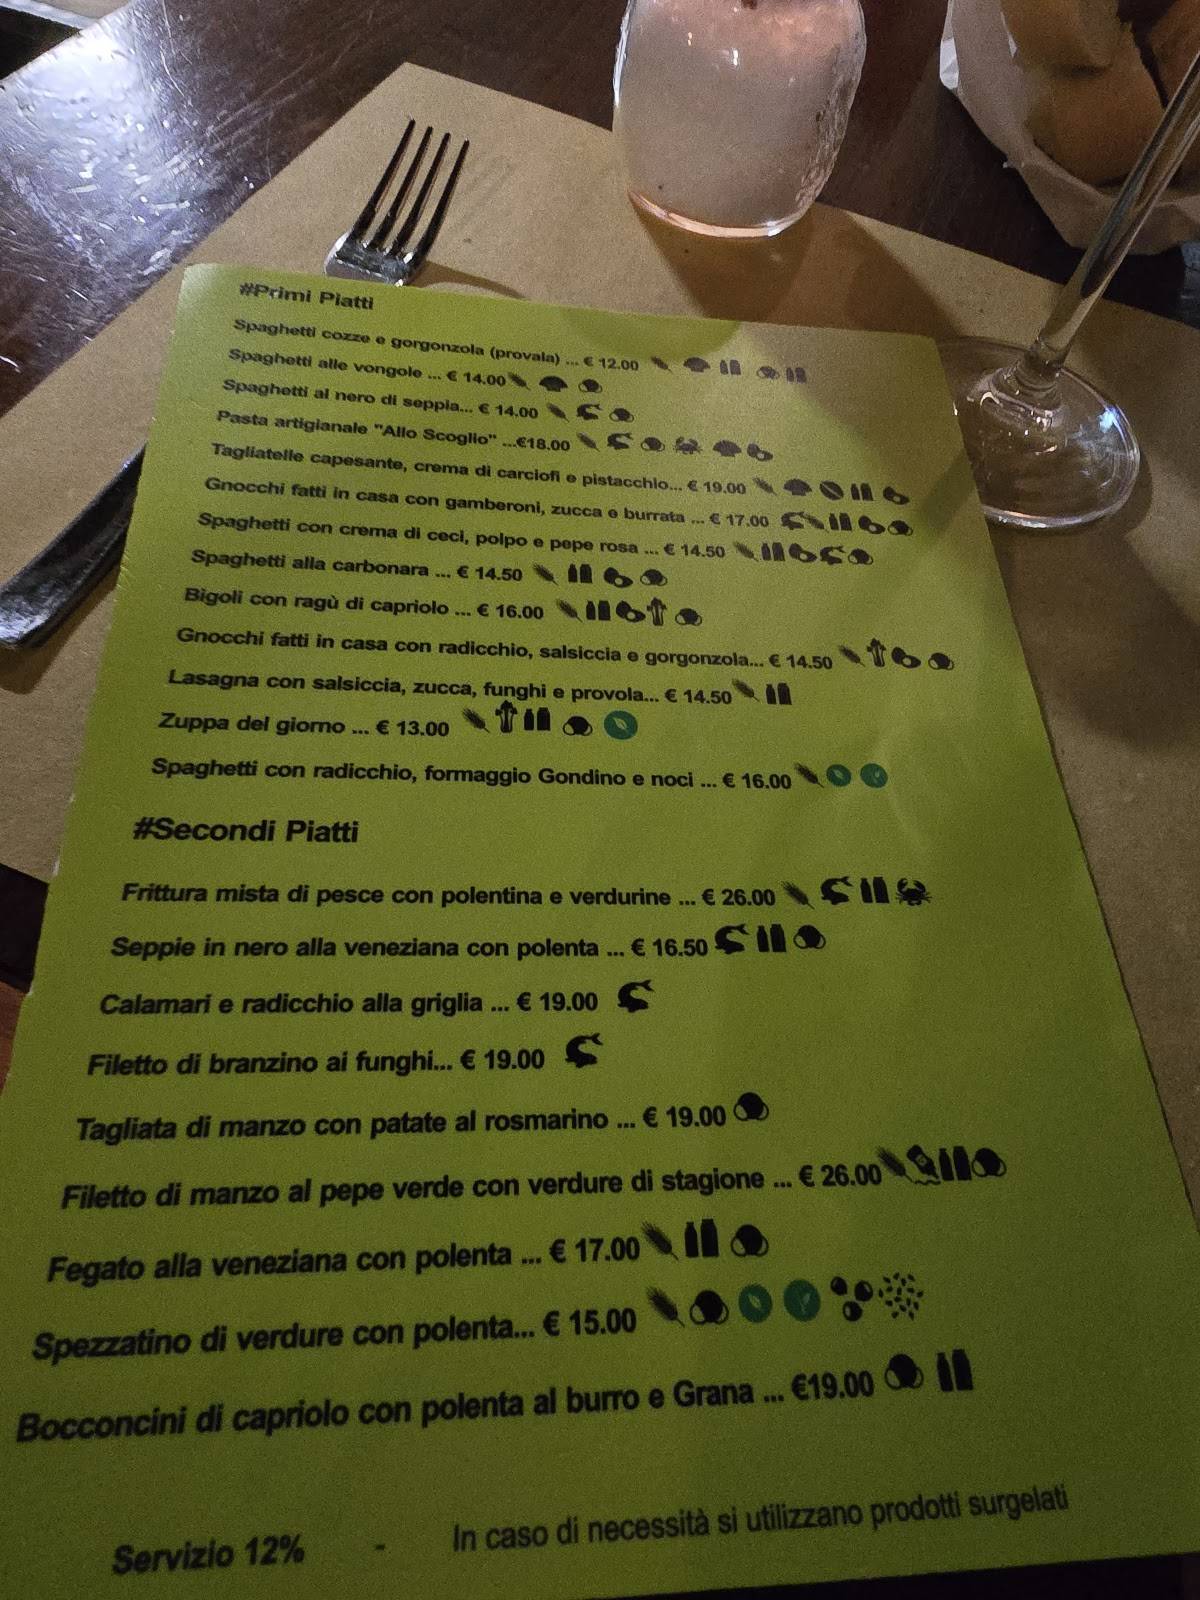 #Primi Piatti
Spaghetti cozze e gorgonzola (provala) ... € 12.00
Spaghetti alle vongole ... € 14.00
Spaghetti al nero di seppia... € 14.00
Pasta artigianale "Allo Scoglio" ...€18.00
Tagliatelle capesante, crema di carciofi e pistacchio... € 19.00
Gnocchi fatti in casa con gamberoni, zucca e burrata ... € 17.00
Spaghetti con crema di ceci, polpo e pepe rosa ... € 14.50
Spaghetti alla carbonara ... € 14.50
Bigoli con ragù di capriolo ... € 16.00
Gnocchi fatti in casa con radicchio, salsiccia e gorgonzola... € 14.50
Lasagna con salsiccia, zucca, funghi e provola... € 14.50
Zuppa del giorno ... € 13.00
Spaghetti con radicchio, formaggio Gondino e noci ... € 16.00
#Secondi Piatti
Frittura mista di pesce con polentina e verdurine ... € 26.00
Seppie in nero alla veneziana con polenta ... € 16.50
Calamari e radicchio alla griglia ... € 19.00
Filetto di branzino ai funghi... € 19.00
Tagliata di manzo con patate al rosmarino ... € 19.00
Filetto di manzo al pepe verde con verdure di stagione ... € 26.00
Fegato alla veneziana con polenta ... € 17.00
Spezzatino di verdure con polenta... € 15.00
Bocconcini di capriolo con polenta al burro e Grana ... €19.00
Servizio 12% - In caso di necessità si utilizzano prodotti surgelati